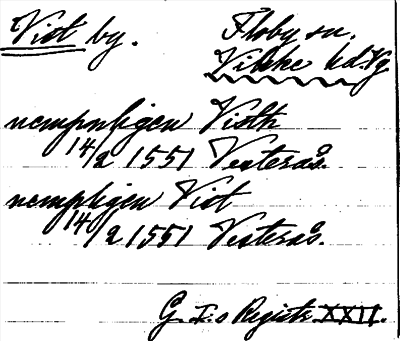 Vist by. Floby sn.
Vilske hd. Vg
nempnligen Visth
14/2 1551 Vesterås.
nempligen Vist
14/2 1551 Vesterås.
G. I:s Registr. XXII.